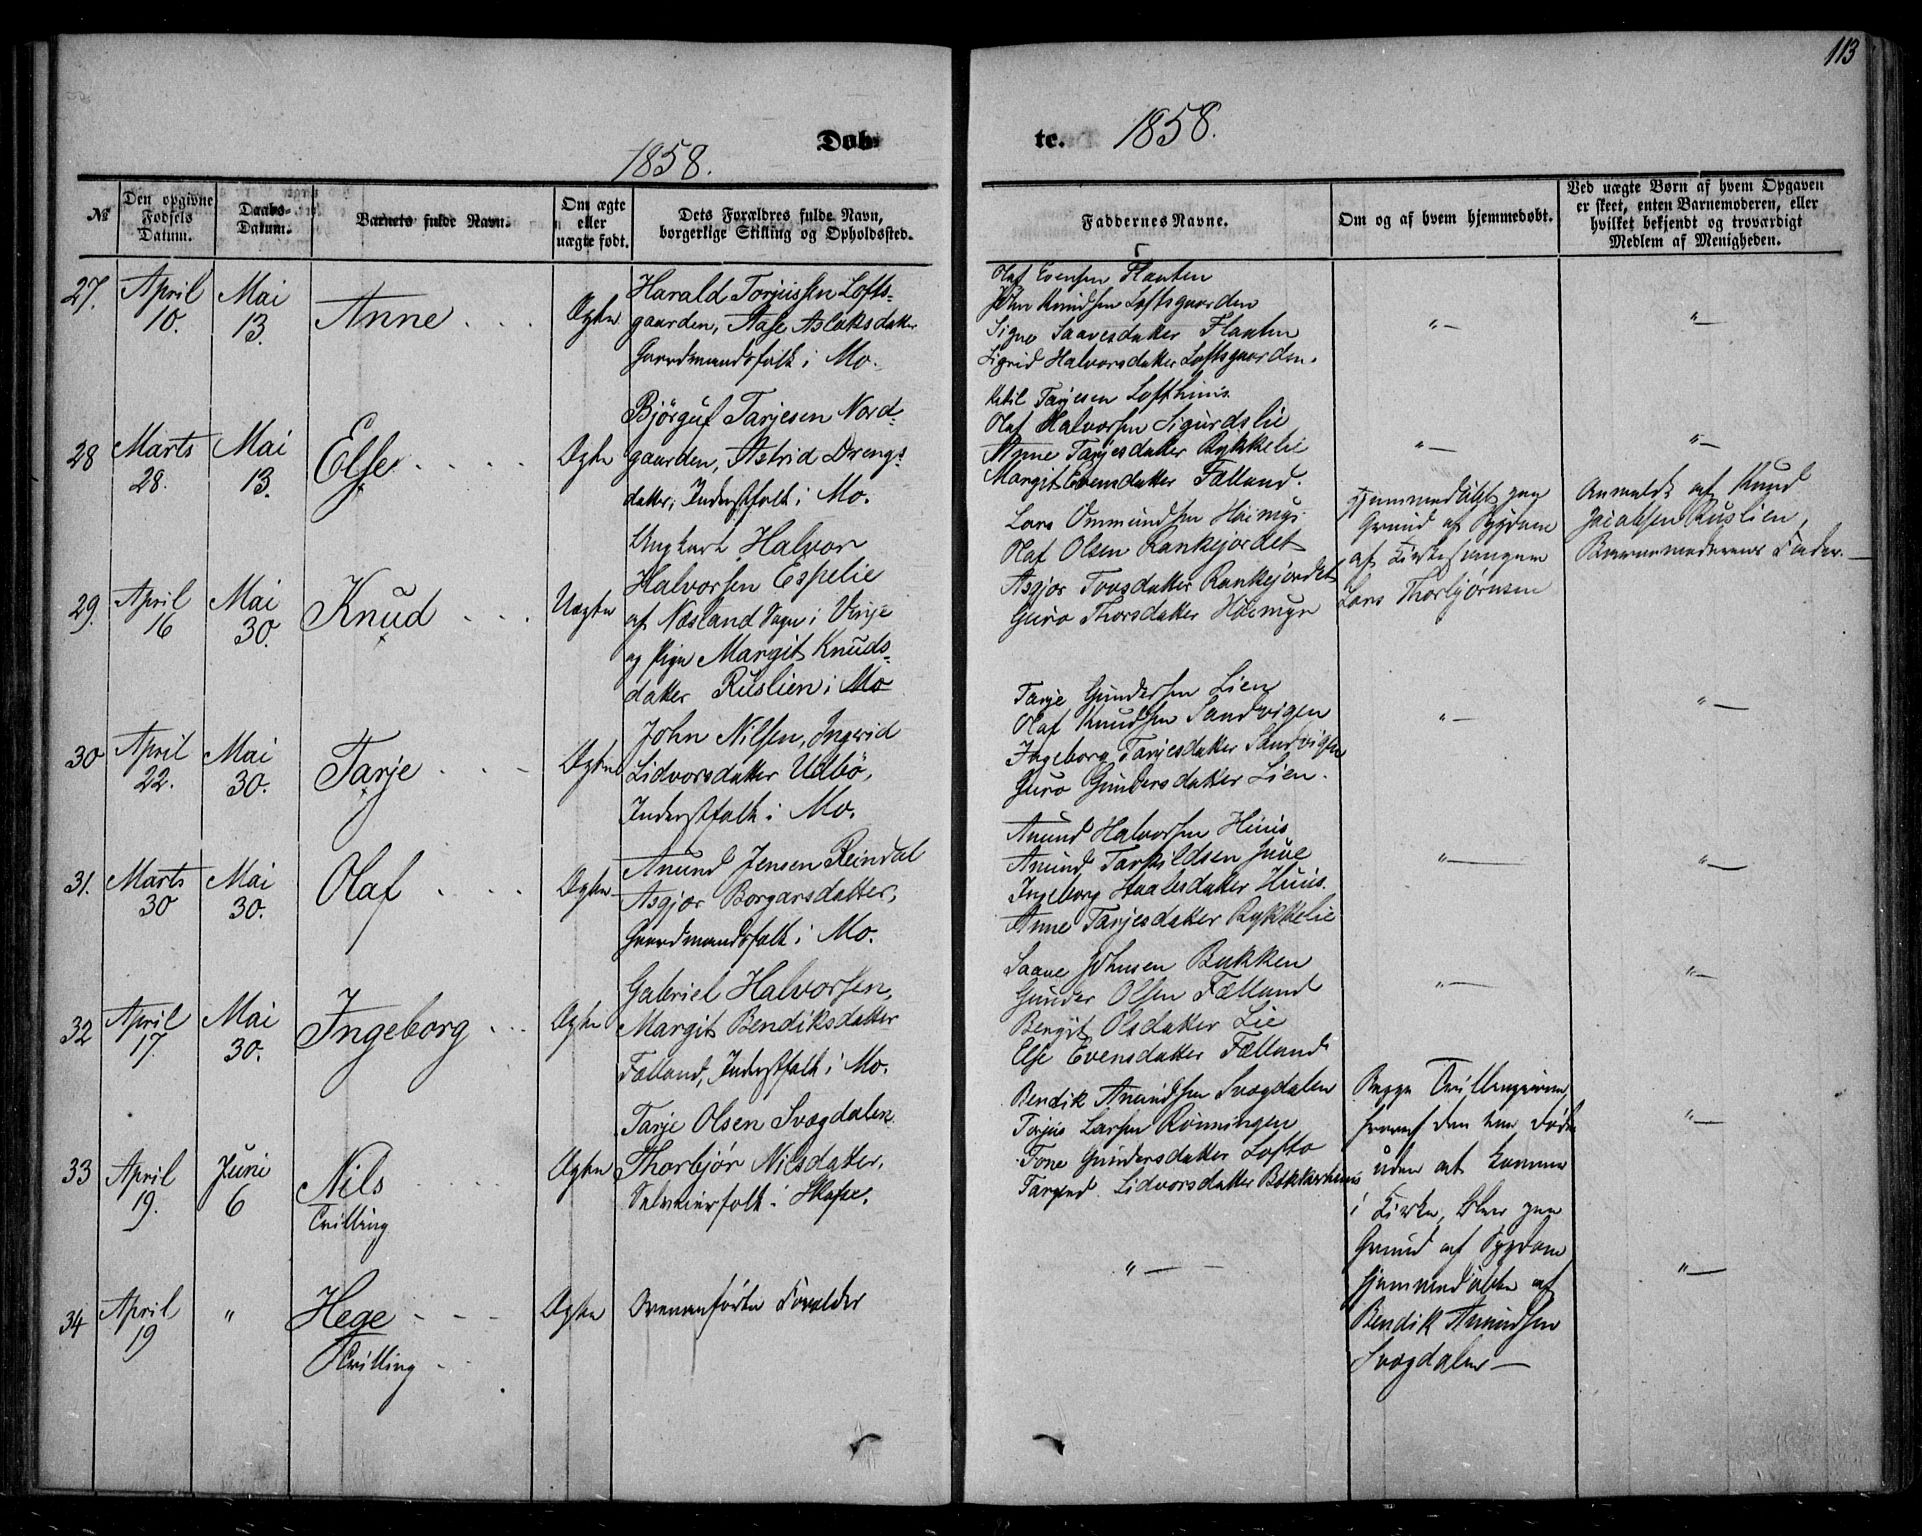 113
1858.
Døb-
te.
1858.
№
Den opgivne
Fødsels
Datum.
Daabs-
Datum.
Barnets fulde Navn.
Om ægte
eller
uægte født.
Dets Forældres fulde Navn,
borgerlige Stilling og Opholdssted.
Faddernes Navne.
Om og af hvem hjemmedøbt.
Ved uægte Børn af hvem Opgaven
er skeet, enten Barnemoderen, eller
hvilket bekjendt og troværdigt
Medlem af Menigheden.
27.
April
10.
Mai
13.
Anne
Ægte
Harald Torjussen Lofts-
gaarden, Aase Aslaksdatter
Gaardmandsfolk i Mo.
Olaf Evensen Flaaten
John Knudsen Loftsgaarden
Signe Saavesdatter Flaaten
Sigrid Halvorsdatter Loftsgaarden.
"—
"—
28
Marts
28.
Mai
13.
Else
Ægte
Bjørguf Tarjesen Nord-
gaarden, Astrid Drengs-
datter, Inderstfolk i Mo.
Ketil Tarjesen Lofthuus.
Olaf Halvorsen Sigurdslie
Anne Tarjesdatter Rykkelie
Margit Evensdatter Fælland.
"—
"—
29.
April
16
Mai
30.
Knud
Uægte
Ungkarl Halvor
Halvorsen Espelie
af Næsland Sogn i Vinje
og Pige Margit Knuds-
datter Ruslien i Mo
Lars Ommundsen
Olaf Olsen Rankejordet
Asgjør Tovsdatter Rankejordet
Guro Thorsdatter
Hjemmedøbt paa
Grund af Sygdom
af Kirkesangeren
Lars Thorbjørnsen
Anmeldt af Knud
Jacobsen Ruslien,
Barnemoderens Fader.—
30
April
22.
Mai
30.
Tarje
Ægte
John Nilsen, Ingrid
Lidvorsdatter Udbø,
Inderstfolk i Mo.
Tarje Gundersen Lien
Olaf Knudsen Sandvigen
Ingeborg Tarjesdatter Sandvigen
Guro Gundersdatter Lien.
"—
"—
31.
Marts
30
Mai
30.
Olaf
Ægte
Anund Jensen Reindal
Asgjør Borgarsdatter,
Gaardmandsfolk i Mo.
Anund Halvorsen Huus
Anund Tarkildsen Juve
Ingeborg Staalesdatter Huus.
Anne Tarjesdatter Rykkelie
"—
"—
32
April
17.
Mai
30.
Ingeborg
Ægte
Gabriel Halvorsen,
Margit Bendiksdatter
Fælland, Inderstfolk i Mo.
Saave Johnsen Bakken
Gunder Olsen Fælland
Bergit Olsdatter Lie
Else Evensdatter Fælland
"—
"—
33
April
19.
Juni
6
Nils
Tvilling
Ægte
Tarje Olsen Svægdalen
Thorbjør Nilsdatter,
Selveierfolk i Skafse.
Bendik Anundsen Svægdalen
Torjus Larsen Rønningen
Tone Gundersdatter Lofto
Targerd Lidvorsdatter
Begge Tvillingerne,
hvoraf den ene døde
uden at komme
i Kirke, blev paa
Grund af Sygdom
hjemmedøbte af
Bendik Anundsen
Svægdalen—
"—
34
April
19
"
Hege
Tvilling
Ægte
Ovenanførte Forælder
"—
"—